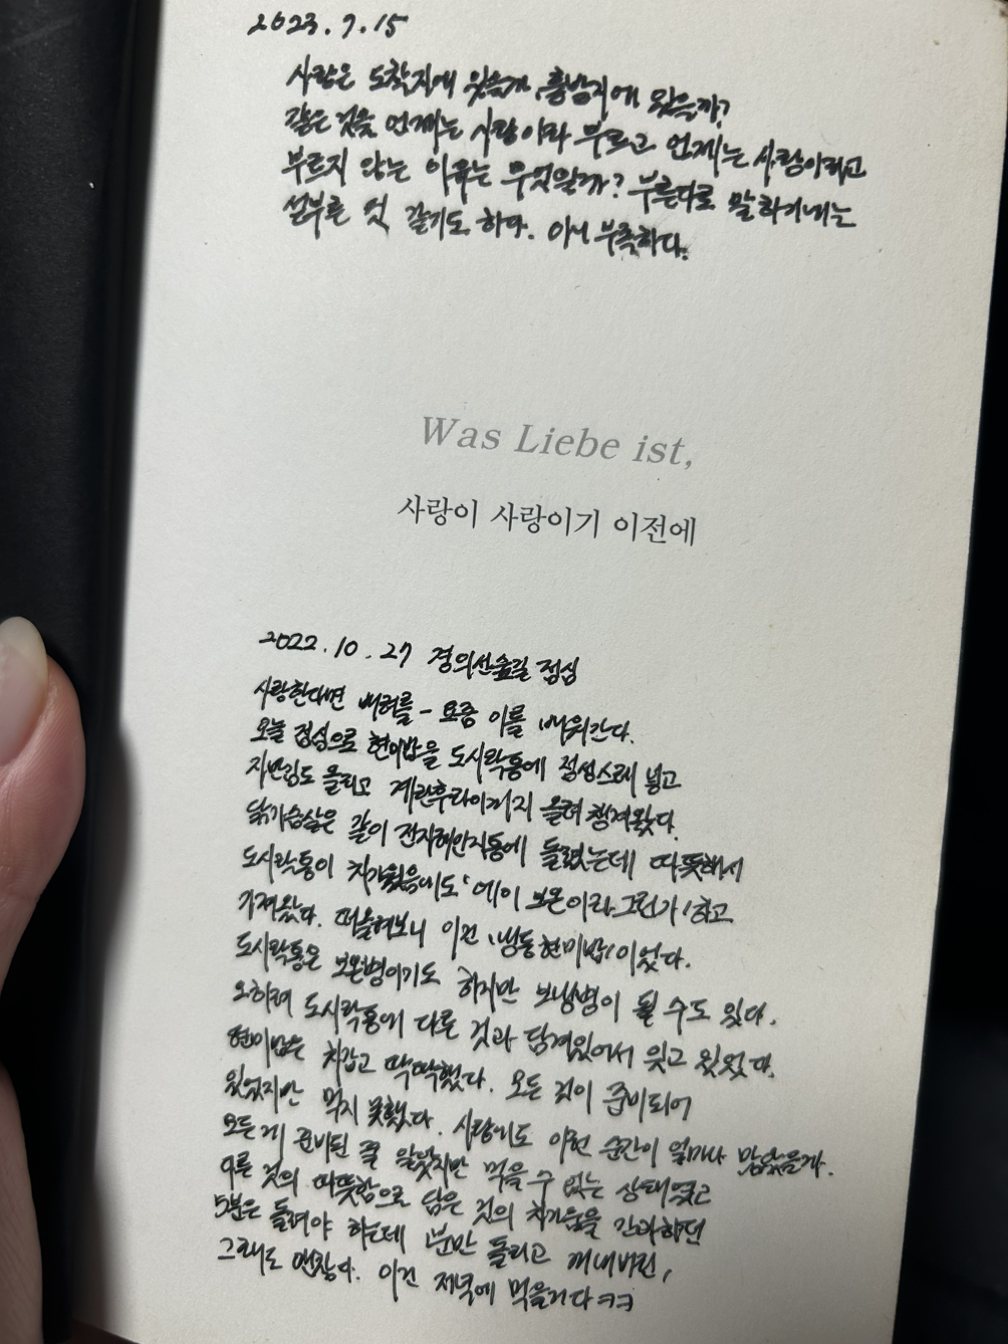 2023.7.15
사랑은 도착지에 있을까, 출발지에 있을까?
같은 것을 언제는 사랑이라 부르고 언제는 사랑이라고
부르지 않는 이유는 무엇일까? 부른다로 말하기에는
섣부른 것 같기도 하다. 아니 부족하다.
Was Liebe ist,
사랑이 사랑이기 이전에
2022.10.27 경의선숲길 점심
사랑한다면 배려를 - 요즘 이를 배워간다.
오늘 점심으로 현미밥을 도시락통에 정성스레 넣고
자반김도 올리고 계란후라이까지 올려 챙겨왔다.
닭가슴살은 같이 전자레인지통에 돌렸는데 따뜻해서
도시락통이 차가웠음에도 '에이 보온이라 그런가' 하고
가져왔다. 떠올려보니 이건 '냉동현미밥'이었다.
도시락통은 보온병이기도 하지만 보냉병이 될 수도 있다.
오히려 도시락통에 다른 것과 담겨있어서 잊고 있었다.
현미밥은 차갑고 딱딱했다. 모든 것이 준비되어
있었지만 먹지 못했다. 사랑에도 이런 순간이 얼마나 많았을까.
모든 게 준비된 줄 알았지만 먹을 수 없는 상태였고
다른 것의 따뜻함으로 담은 것의 차가움을 간과했던
5분은 돌려야 하는데 1분만 돌리고 꺼내버린,
그래도 괜찮다. 이건 저녁에 먹을거다 ㅋㅋ